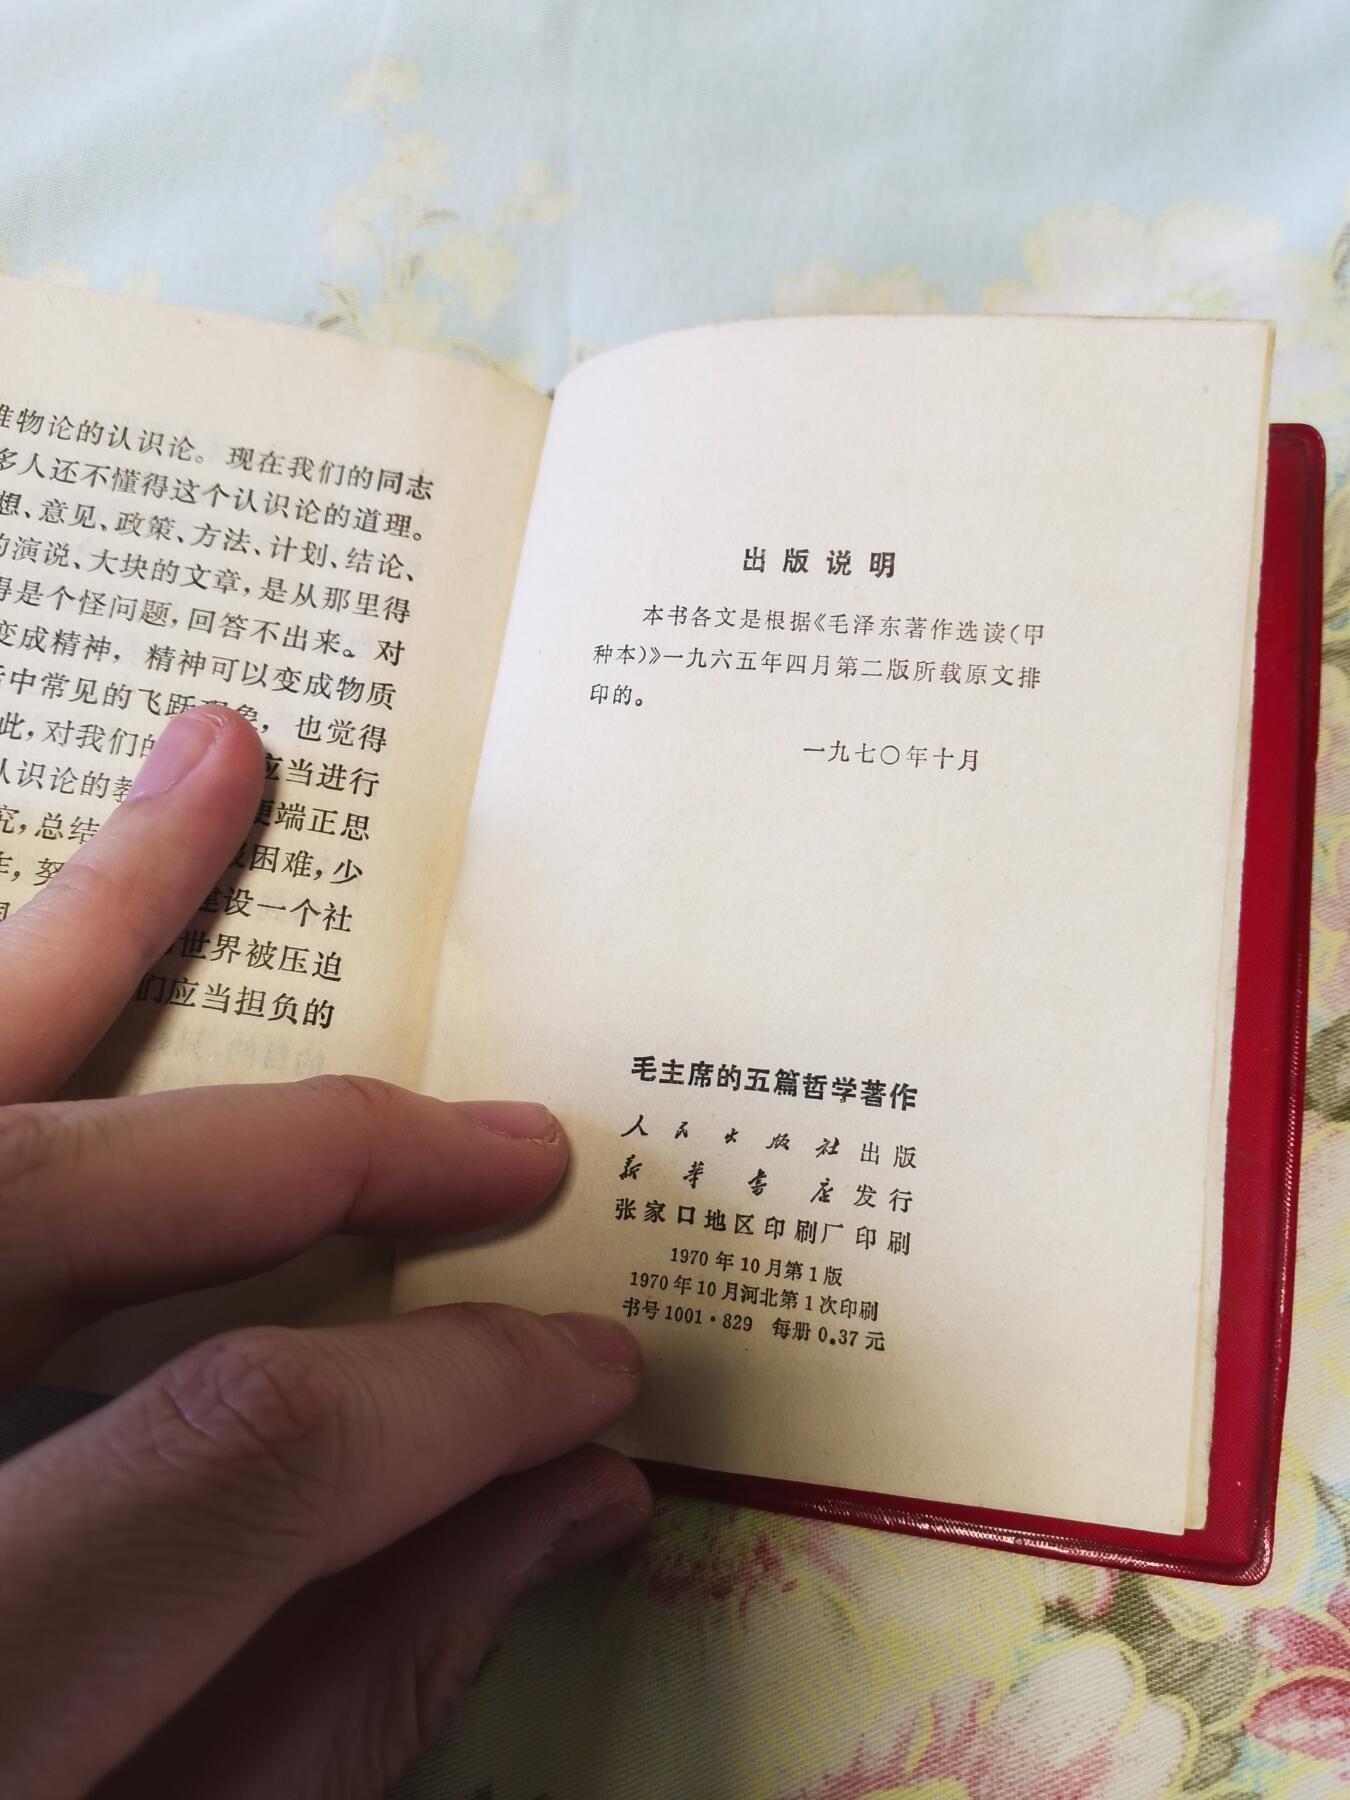 物论的认识论。现在我们的同志
多人还不懂得这个认识论的道理。
想、意见、政策、方法、计划、结论、
的演说、大块的文章，是从那里得
得是个怪问题，回答不出来。对
变成精神，精神可以变成物质
中常见的飞跃现象，也觉得
此，对我们的 应当进行
认识论的教
究，总结 便端正思
努 困难，少
建设一个社
世界被压迫
们应当担负的
出版说明
本书各文是根据《毛泽东著作选读（甲
种本）》一九六五年四月第二版所载原文排
印的。
一九七〇年十月
毛主席的五篇哲学著作
人民出版社出版
新华书店发行
张家口地区印刷厂印刷
1970年10月第1版
1970年10月河北第1次印刷
书号1001·829 每册0.37元